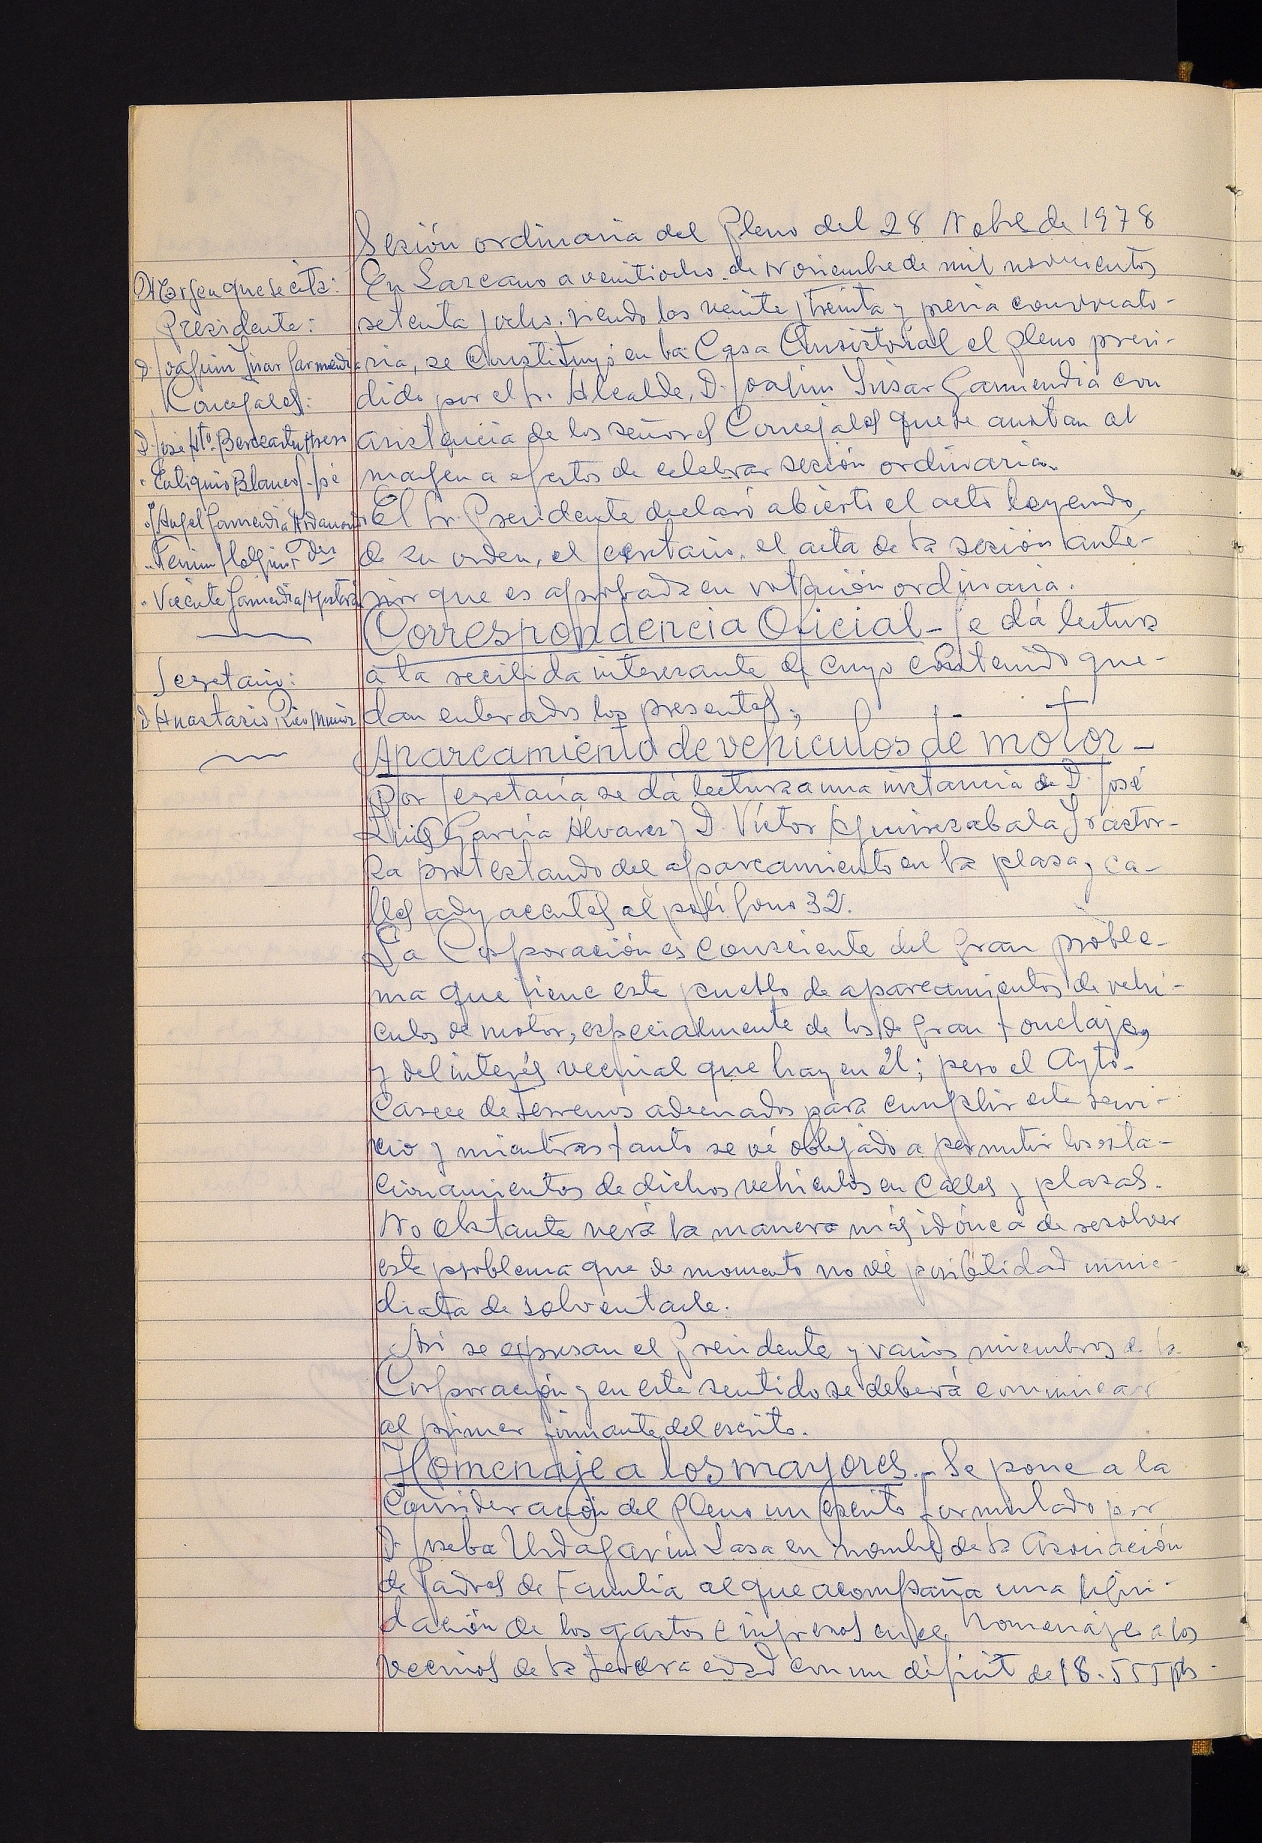 Sesión ordinaria del Pleno del 28 Nobre de 1978
Margen que se cita:
Presidente:
D. Joaquin Insar Garmendia
Concejales:
D. Jose Ant.º Berasartu
" Eutiquio Blanco
" Angel Garmendia
" Fermin Holguin
" Vicente Garmendia
Secretario:
D. Anastasio Rico Muñoz
En Lazcano a veintiocho de Noviembre de mil novecientos
setenta y ocho, siendo las veinte y treinta y previa convocato-
ria, se constituyó en la Casa Consistorial el pleno presi-
dido por el Sr. Alcalde, D. Joaquin Insar Garmendia con
asistencia de los señores Concejales que se anotan al
margen a efectos de celebrar sesión ordinaria.
El Sr. Presidente declaró abierto el acto leyendo,
de su orden, el secretario, el acta de la sesión ante-
rior que es aprobada en votación ordinaria.
Correspondencia Oficial - Se dá lectura
a la recibida interesante de cuyo contenido que-
dan enterados los presentes.
Aparcamiento de vehiculos de motor -
Por Secretaría se dá lectura a una instancia de D. José
Luis García Álvarez y D. Víctor
za protestando del aparcamiento en la plaza y ca-
lles adyacentes al polígono 32.
La Corporación es consciente del gran proble-
ma que tiene este pueblo de aparcamientos de vehi-
culos de motor, especialmente de los de gran tonelaje,
y del interés vecinal que hay en él; pero el Ayto.
carece de terrenos adecuados para cumplir este servi-
cio y mientras tanto se vé obligado a permitir los esta-
cionamientos de dichos vehiculos en calles y plazas.
No obstante verá la manera más idónea de resolver
este problema que de momento no vé posibilidad inme-
diata de solventarle.
Así se expresan el Presidente y varios miembros de la
Corporación y en este sentido se deberá comunicar
al primer firmante del escrito.
Homenaje a los mayores.- Se pone a la
consideración del Pleno un escrito formulado por
D. Joseba Urdagarin Lasa en nombre de la Asociación
de Padres de Familia al que acompaña una liqui-
dación de los gastos e ingresos en el Homenaje a los
vecinos de la tercera edad con un déficit de 18.555 pts.